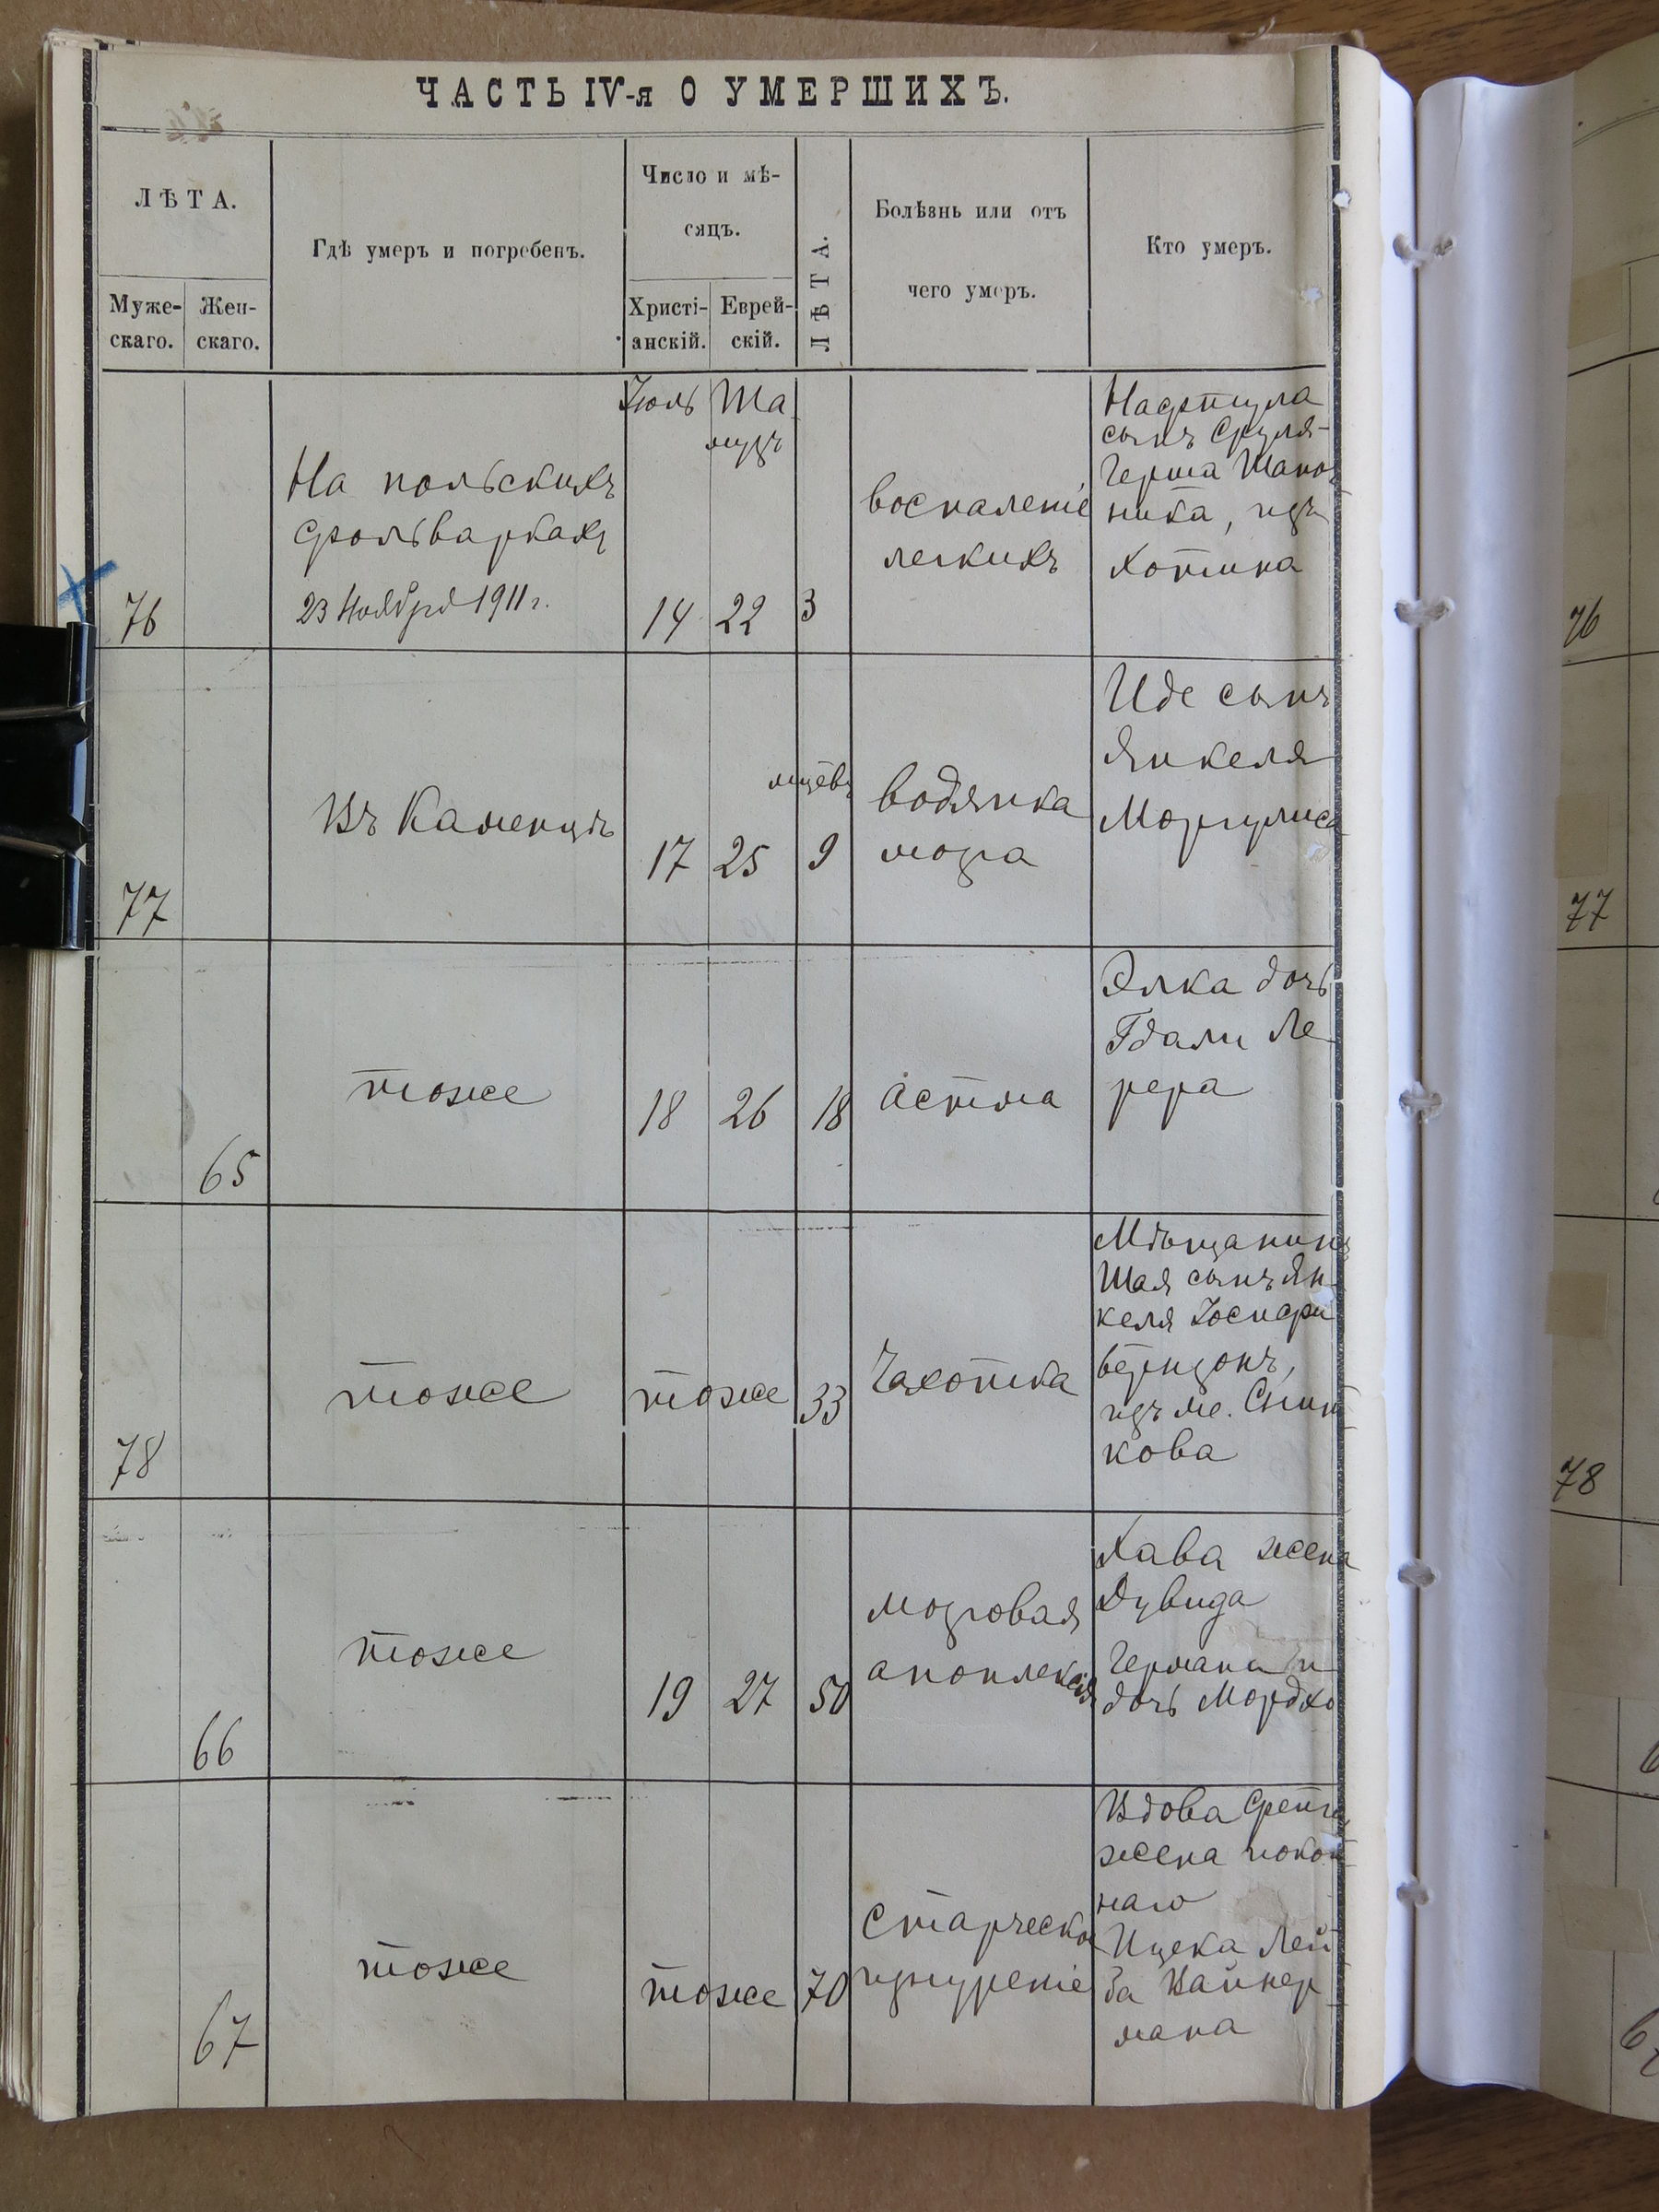 ЧАСТЬ IV-я О УМЕРШИХЪ.
ЛѢТА.
Муже-
скаго.
Жен-
скаго.
Гдѣ умеръ и погребенъ.
Число и мѣ-
сяцъ.
Христі-
анскій.
Еврей-
скій.
ЛѢТА.
Болѣзнь или отъ
чего умеръ.
Кто умеръ.
76
На польскихъ
фольваркахъ
23 Ноября 1911 г.
Іюль
14
Та
музъ
22
3
воспаленіе
легкихъ
Нафтула
сынъ Сруля-
Герша
ника, изъ
Хотина
76
77
Въ Каменцѣ
17
25
мцевъ
9
водянка
мозга
Иде сынъ
Янкеля
Моргулиса
77
65
тоже
18
26
18
астма
Элка дочь
Гдали Ле-
рера
78
тоже
тоже
33
Чахотка
Мѣщанинъ
Шая сынъ Ян-
келя
изъ м.
кова
78
66
тоже
19
27
50
мозговая
апоплексія
Хава жена
Дувида
Германа и
дочь Мордхо
67
тоже
тоже
70
Старческое
изнуреніе
Вдова
жена покой
наго
Ицека Лей
ба Вайнер
мана